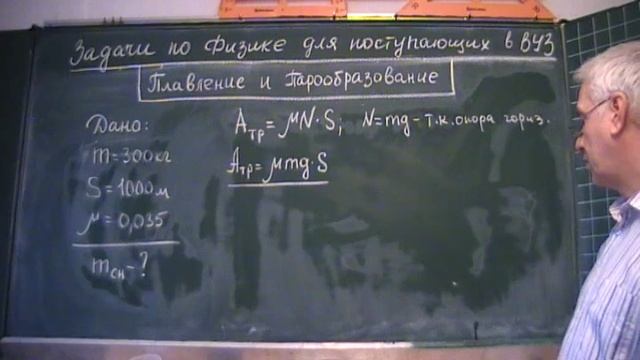 Задачи по физике для поступающих в ВУЗ
Плавление и парообразование
Дано:
m = 300 кг
S = 1000 м
μ = 0,035
mсн - ?
Aтр = μN·S; N = mg - т.к. опора гориз.
Aтр = μmg·S